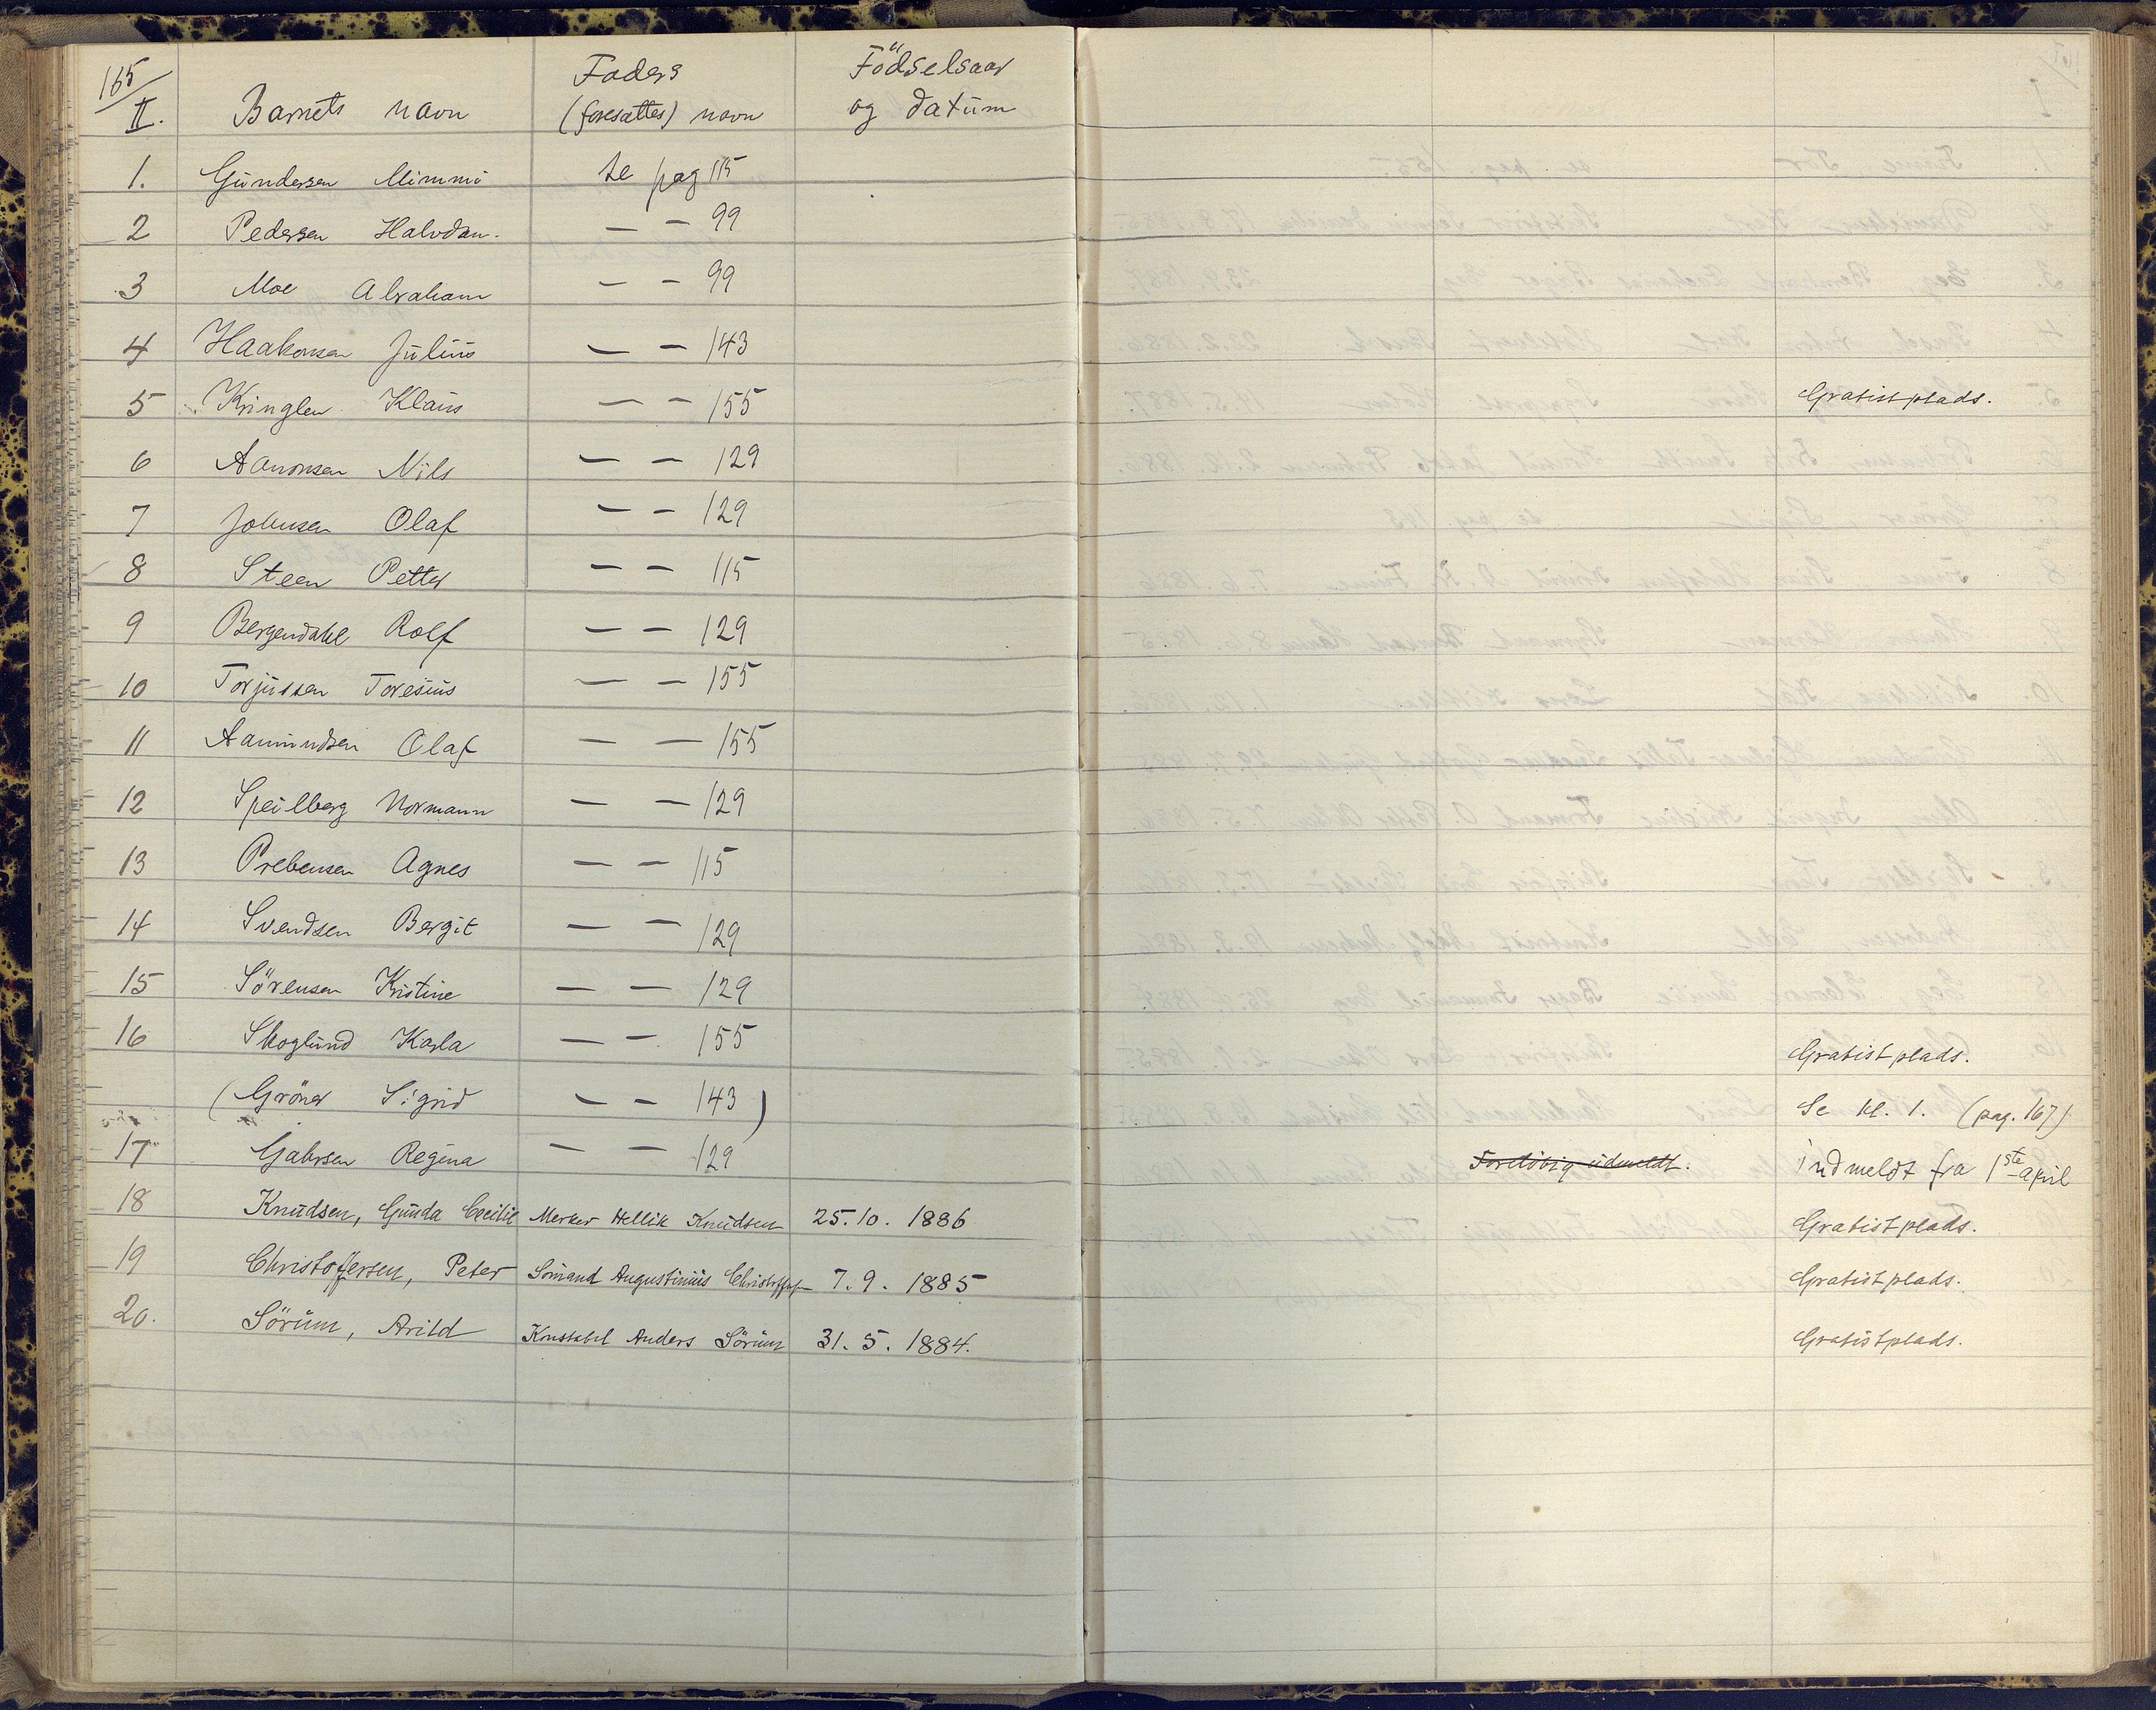 165/II. Barnets navn Faders (foresattes) navn Födselsaar og datum
1. Gundersen Mimmi se pag 115
2 Pedersen Halvdan. — — 99
3 Moe Abraham — — 99
4 Haakonsen Julius — — 143
5 Kringlen Klaus — — 155 Gratistplads.
6 Aanonsen Nils — — 129
7 Johnsen Olaf — — 129
8 Steen Petter — — 115
9 Bergendahl Rolf — — 129
10 Torjussen Toresius — — 155
11 Aamundsen Olaf — — 155
12 Speilberg Normann — — 129
13 Prebensen Agnes — — 115
14 Svendsen Bergit — — 129
15 Sörensen Kristine — — 129
16 Skoglund Karla — — 155 Gratistplads.
(Gröner Sigrid — — 143) Se kl. 1. (pag. 167)
17 Gahrsen Regina — — 129 Foreløbig udmeldt. indmeldt fra 1ste april
18 Knudsen, Gunda Cecilie Merker Hellik Knudsen 25.10. 1886 Gratistplads.
19 Christoffersen, Peter Sömand Augustinius Christoffersen 7.9. 1885 Gratistplads.
20. Sörum, Arild Konstabel Anders Sörum 31.5. 1884. Gratistplads.